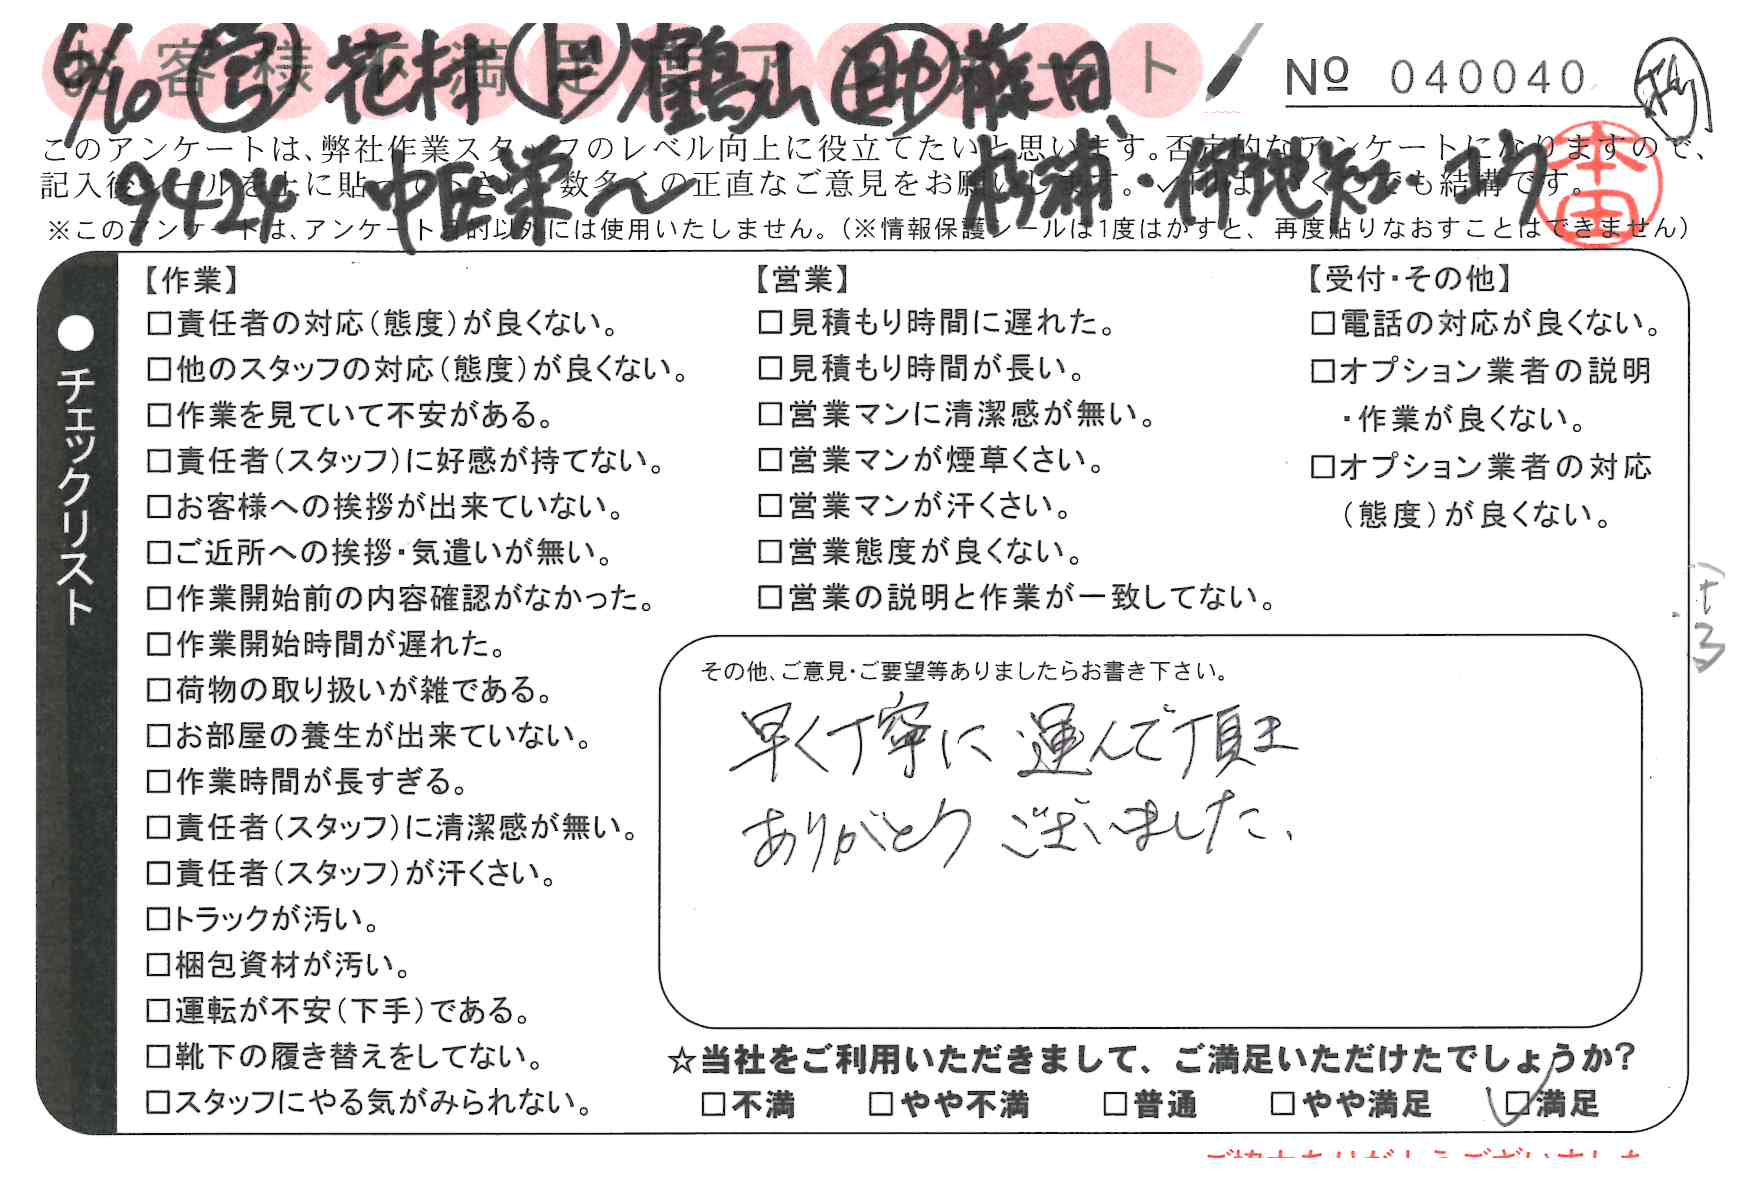 お客様不満足度アンケート
6/10 花村 鶴山 田中 藤田
Nº 040040
このアンケートは、弊社作業スタッフのレベル向上に役立てたいと思います。否定的なアンケートになりますので、
記入後シールを上に貼って下さい。数多くの正直なご意見をお願いします。✓印はいくつでも結構です。
9424 杉浦・伊地知・コウ
本田
※このアンケートは、アンケート目的以外には使用いたしません。(※情報保護シールは1度はがすと、再度貼りなおすことはできません)
●チェックリスト
【作業】
□責任者の対応(態度)が良くない。
□他のスタッフの対応(態度)が良くない。
□作業を見ていて不安がある。
□責任者(スタッフ)に好感が持てない。
□お客様への挨拶が出来ていない。
□ご近所への挨拶・気遣いが無い。
□作業開始前の内容確認がなかった。
□作業開始時間が遅れた。
□荷物の取り扱いが雑である。
□お部屋の養生が出来ていない。
□作業時間が長すぎる。
□責任者(スタッフ)に清潔感が無い。
□責任者(スタッフ)が汗くさい。
□トラックが汚い。
□梱包資材が汚い。
□運転が不安(下手)である。
□靴下の履き替えをしてない。
□スタッフにやる気がみられない。
【営業】
□見積もり時間に遅れた。
□見積もり時間が長い。
□営業マンに清潔感が無い。
□営業マンが煙草くさい。
□営業マンが汗くさい。
□営業態度が良くない。
□営業の説明と作業が一致してない。
【受付・その他】
□電話の対応が良くない。
□オプション業者の説明
・作業が良くない。
□オプション業者の対応
(態度)が良くない。
その他、ご意見・ご要望等ありましたらお書き下さい。
早く丁寧に運んで頂き
ありがとうございました、
☆当社をご利用いただきまして、ご満足いただけたでしょうか?
□不満 □やや不満 □普通 □やや満足 □満足
ご協力ありがとうございました